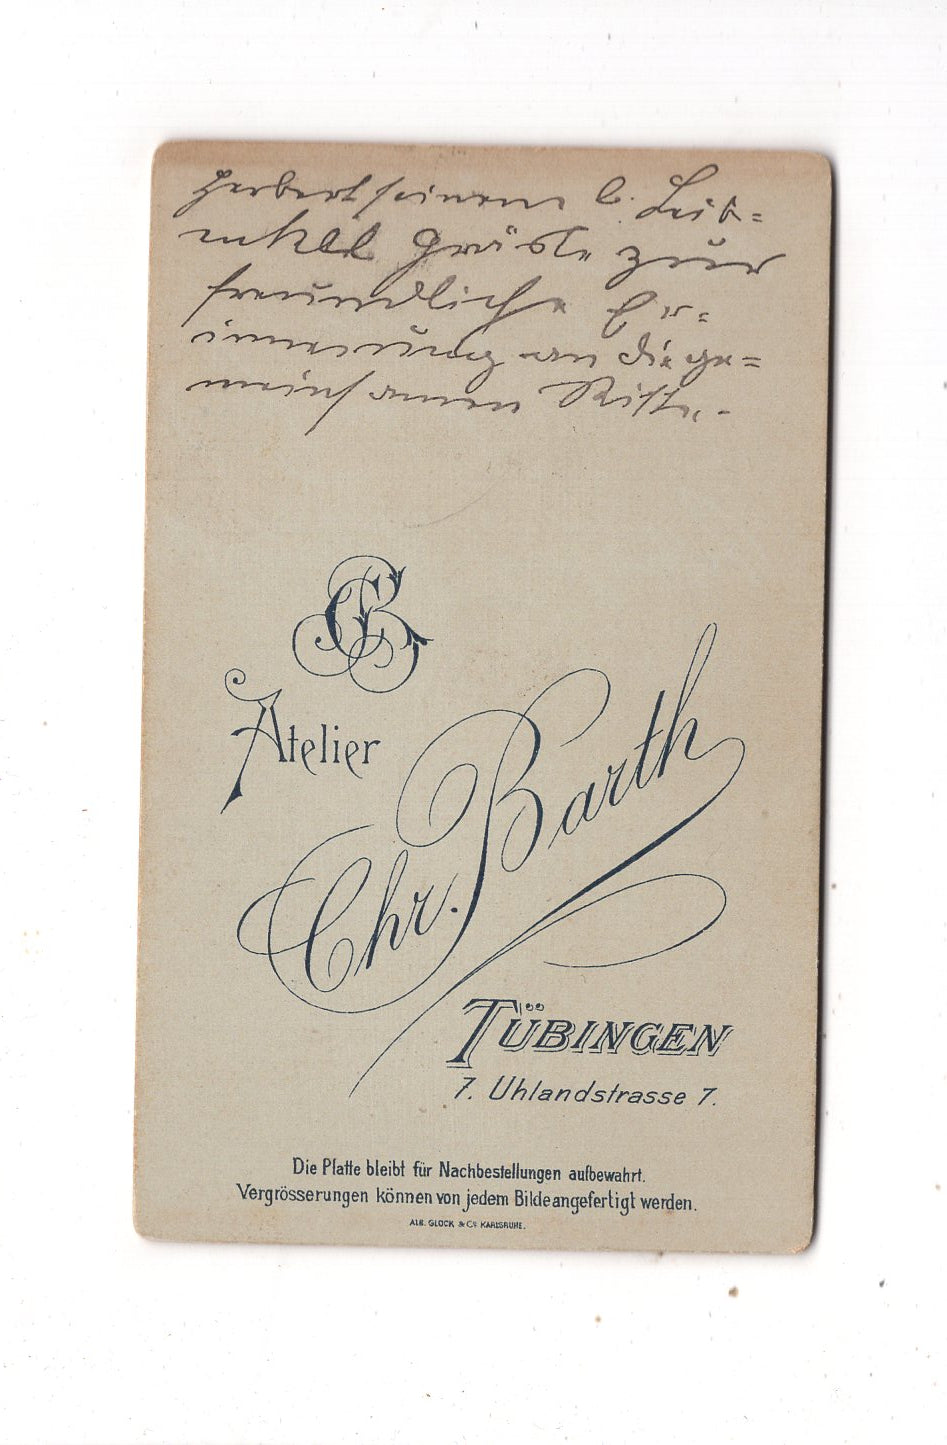 Herbert seinem l. Leib=
enkel Gräsle zur
freundliche Er=
innerung an die ge=
meinsamen
CB
Atelier
Chr. Barth
TÜBINGEN
7. Uhlandstrasse 7.
Die Platte bleibt für Nachbestellungen aufbewahrt.
Vergrösserungen können von jedem Bilde angefertigt werden.
ALB. GLOCK & Cº KARLSRUHE.